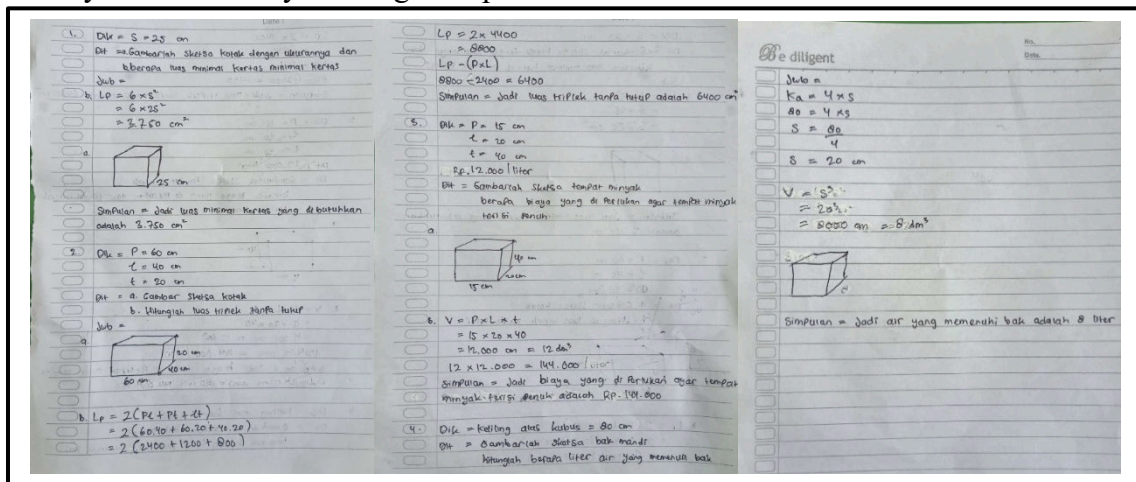 1. Dik = S = 25 cm
Dit = a. Gambarlah sketsa kotak dengan ukurannya dan
b. berapa luas minimal kertas minimal kertas
Jwb =
b. Lp = 6 × s²
= 6 × 25²
= 3.750 cm²
a.
25 cm
Simpulan = Jadi luas minimal kertas yang dibutuhkan
adalah 3.750 cm²
2. Dik = P = 60 cm
l = 40 cm
t = 20 cm
Dit = a. Gambar sketsa kotak
b. Hitunglah luas triplek tanpa tutup
Jwb =
a
20 cm
40 cm
60 cm
b. Lp = 2 (Pl + Pt + lt)
= 2 (60.40 + 60.20 + 40.20)
= 2 (2400 + 1200 + 800)
Lp = 2 × 4400
= 8800
Lp - (P×L)
8800 - 2400 = 6400
Simpulan = Jadi luas triplek tanpa tutup adalah 6400 cm²
3. Dik = P = 15 cm
l = 20 cm
t = 40 cm
Rp. 12.000 / liter
Dit = Gambarlah sketsa tempat minyak
berapa biaya yang di perlukan agar tempat minyak
terisi penuh
a
40 cm
20 cm
15 cm
b. V = P × L × t
= 15 × 20 × 40
= 12,000 cm = 12 dm³
12 × 12.000 = 144.000 / liter
Simpulan = Jadi biaya yang di perlukan agar tempat
minyak terisi penuh adalah RP.
4. Dik = keliling alas kubus = 80 cm
Dit = Gambarlah sketsa bak mandi
hitunglah berapa liter air yang memenuhi bak
Be diligent
No.
Date.
Jwb =
Ka = 4 × s
80 = 4 × s
S = 80
4
S = 20 cm
V = S³
= 20³
= 8000 cm = 8 dm³
Simpulan = Jadi air yang memenuhi bak adalah 8 liter